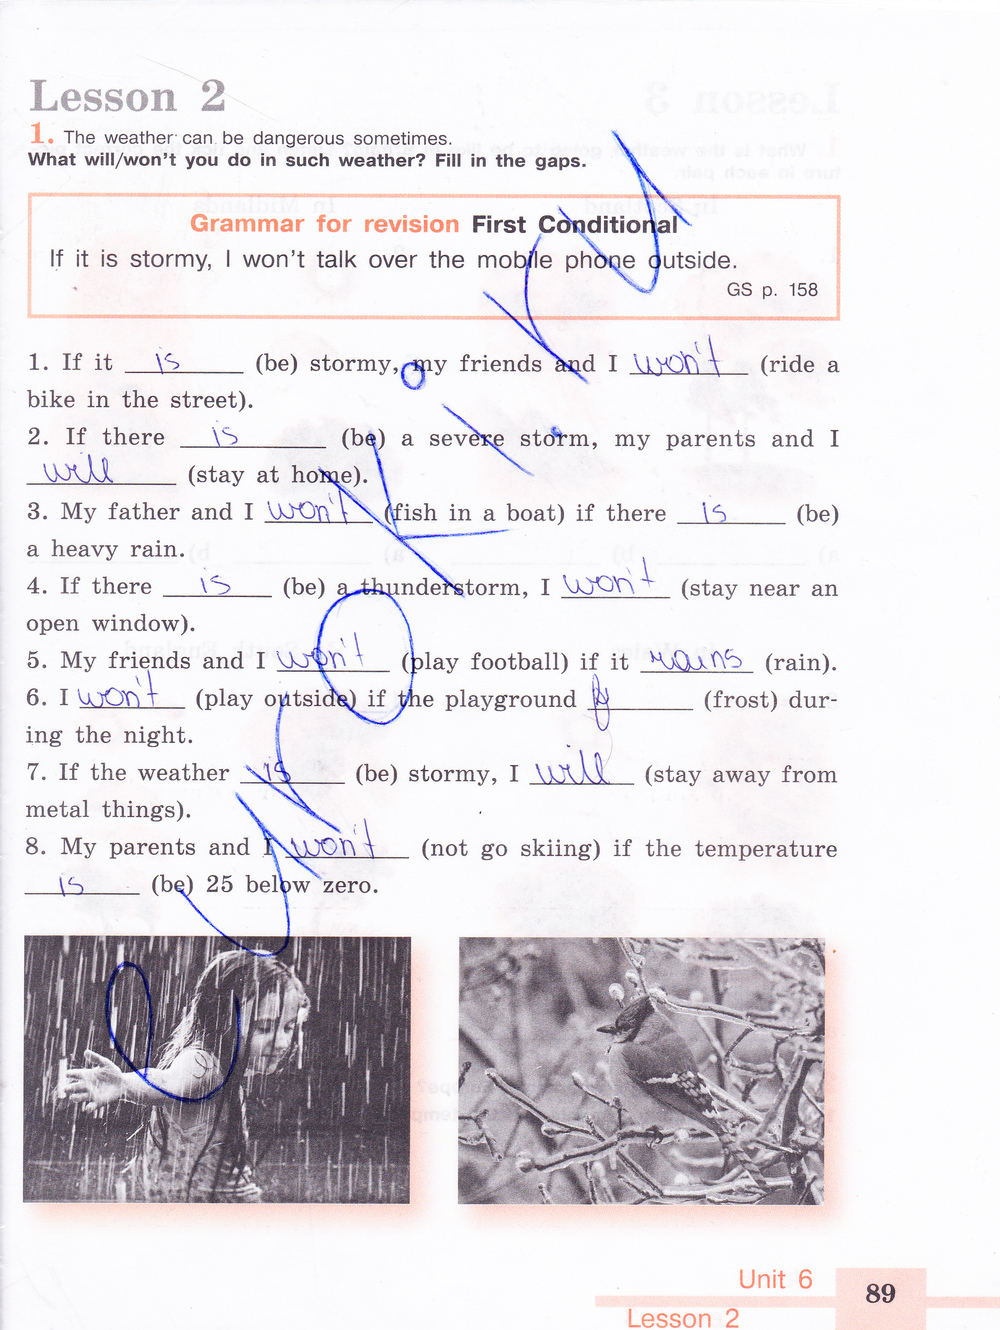 Lesson 2
1. The weather can be dangerous sometimes.
What will/won't you do in such weather? Fill in the gaps.
Grammar for revision First Conditional
If it is stormy, I won't talk over the mobile phone outside.
GS p. 158
1. If it is (be) stormy, my friends and I won't (ride a
bike in the street).
2. If there is (be) a severe storm, my parents and I
will (stay at home).
3. My father and I won't (fish in a boat) if there is (be)
a heavy rain.
4. If there is (be) a thunderstorm, I won't (stay near an
open window).
5. My friends and I won't (play football) if it rains (rain).
6. I won't (play outside) if the playground (frost) dur-
ing the night.
7. If the weather is (be) stormy, I will (stay away from
metal things).
8. My parents and I won't (not go skiing) if the temperature
is (be) 25 below zero.
Unit 6
89
Lesson 2